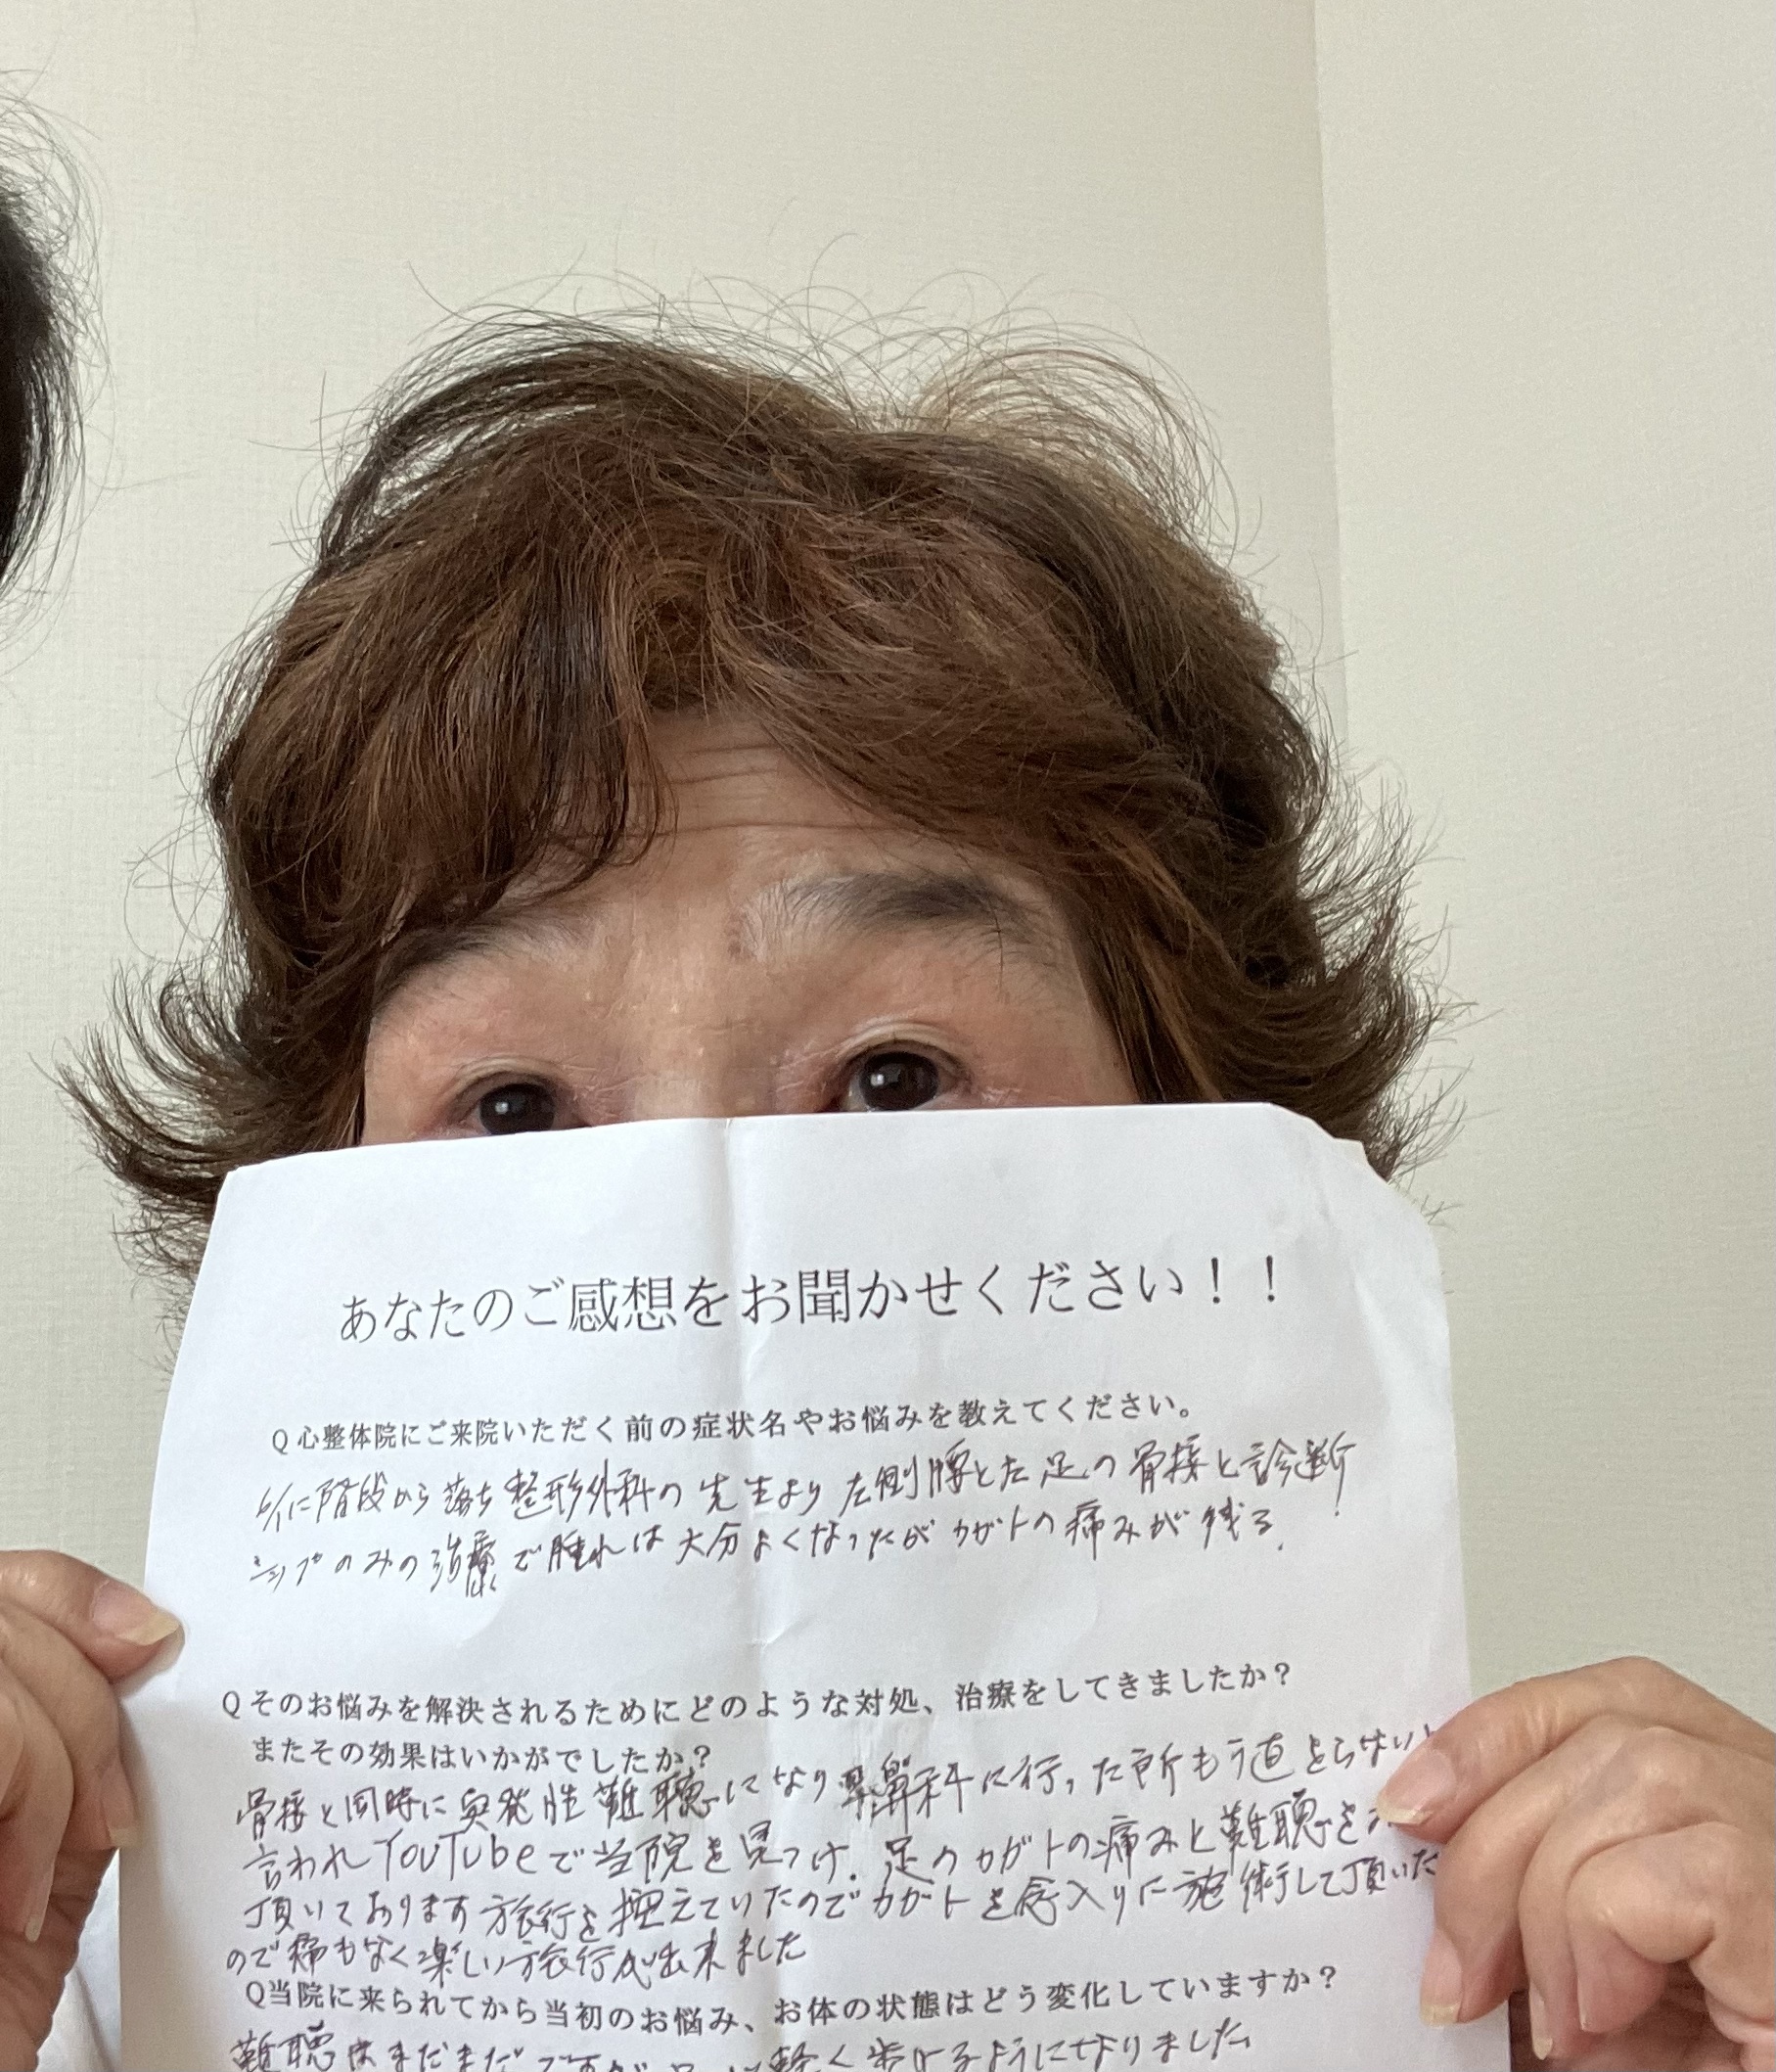 あなたのご感想をお聞かせください！！
Q心整体院にご来院いただく前の症状名やお悩みを教えてください。
6/1に階段から落ち整形外科の先生より左側腰と左足の骨接と診断
シップのみの治療で腫れは大分よくなったがカガトの痛みが残る.
Qそのお悩みを解決されるためにどのような対処、治療をしてきましたか？
またその効果はいかがでしたか？
骨接と同時に突発性難聴になり耳鼻科に行った所もう直らない
言われYouTubeで当院を見つけ.足のカガトの痛みと難聴を
頂いております旅行を控えていたのでカガトを念入りに施術して頂いた
ので痛もなく楽しい旅行が出来ました
Q当院に来られてから当初のお悩み、お体の状態はどう変化していますか？
難聴はまだまだですが 軽く歩けるようになりました